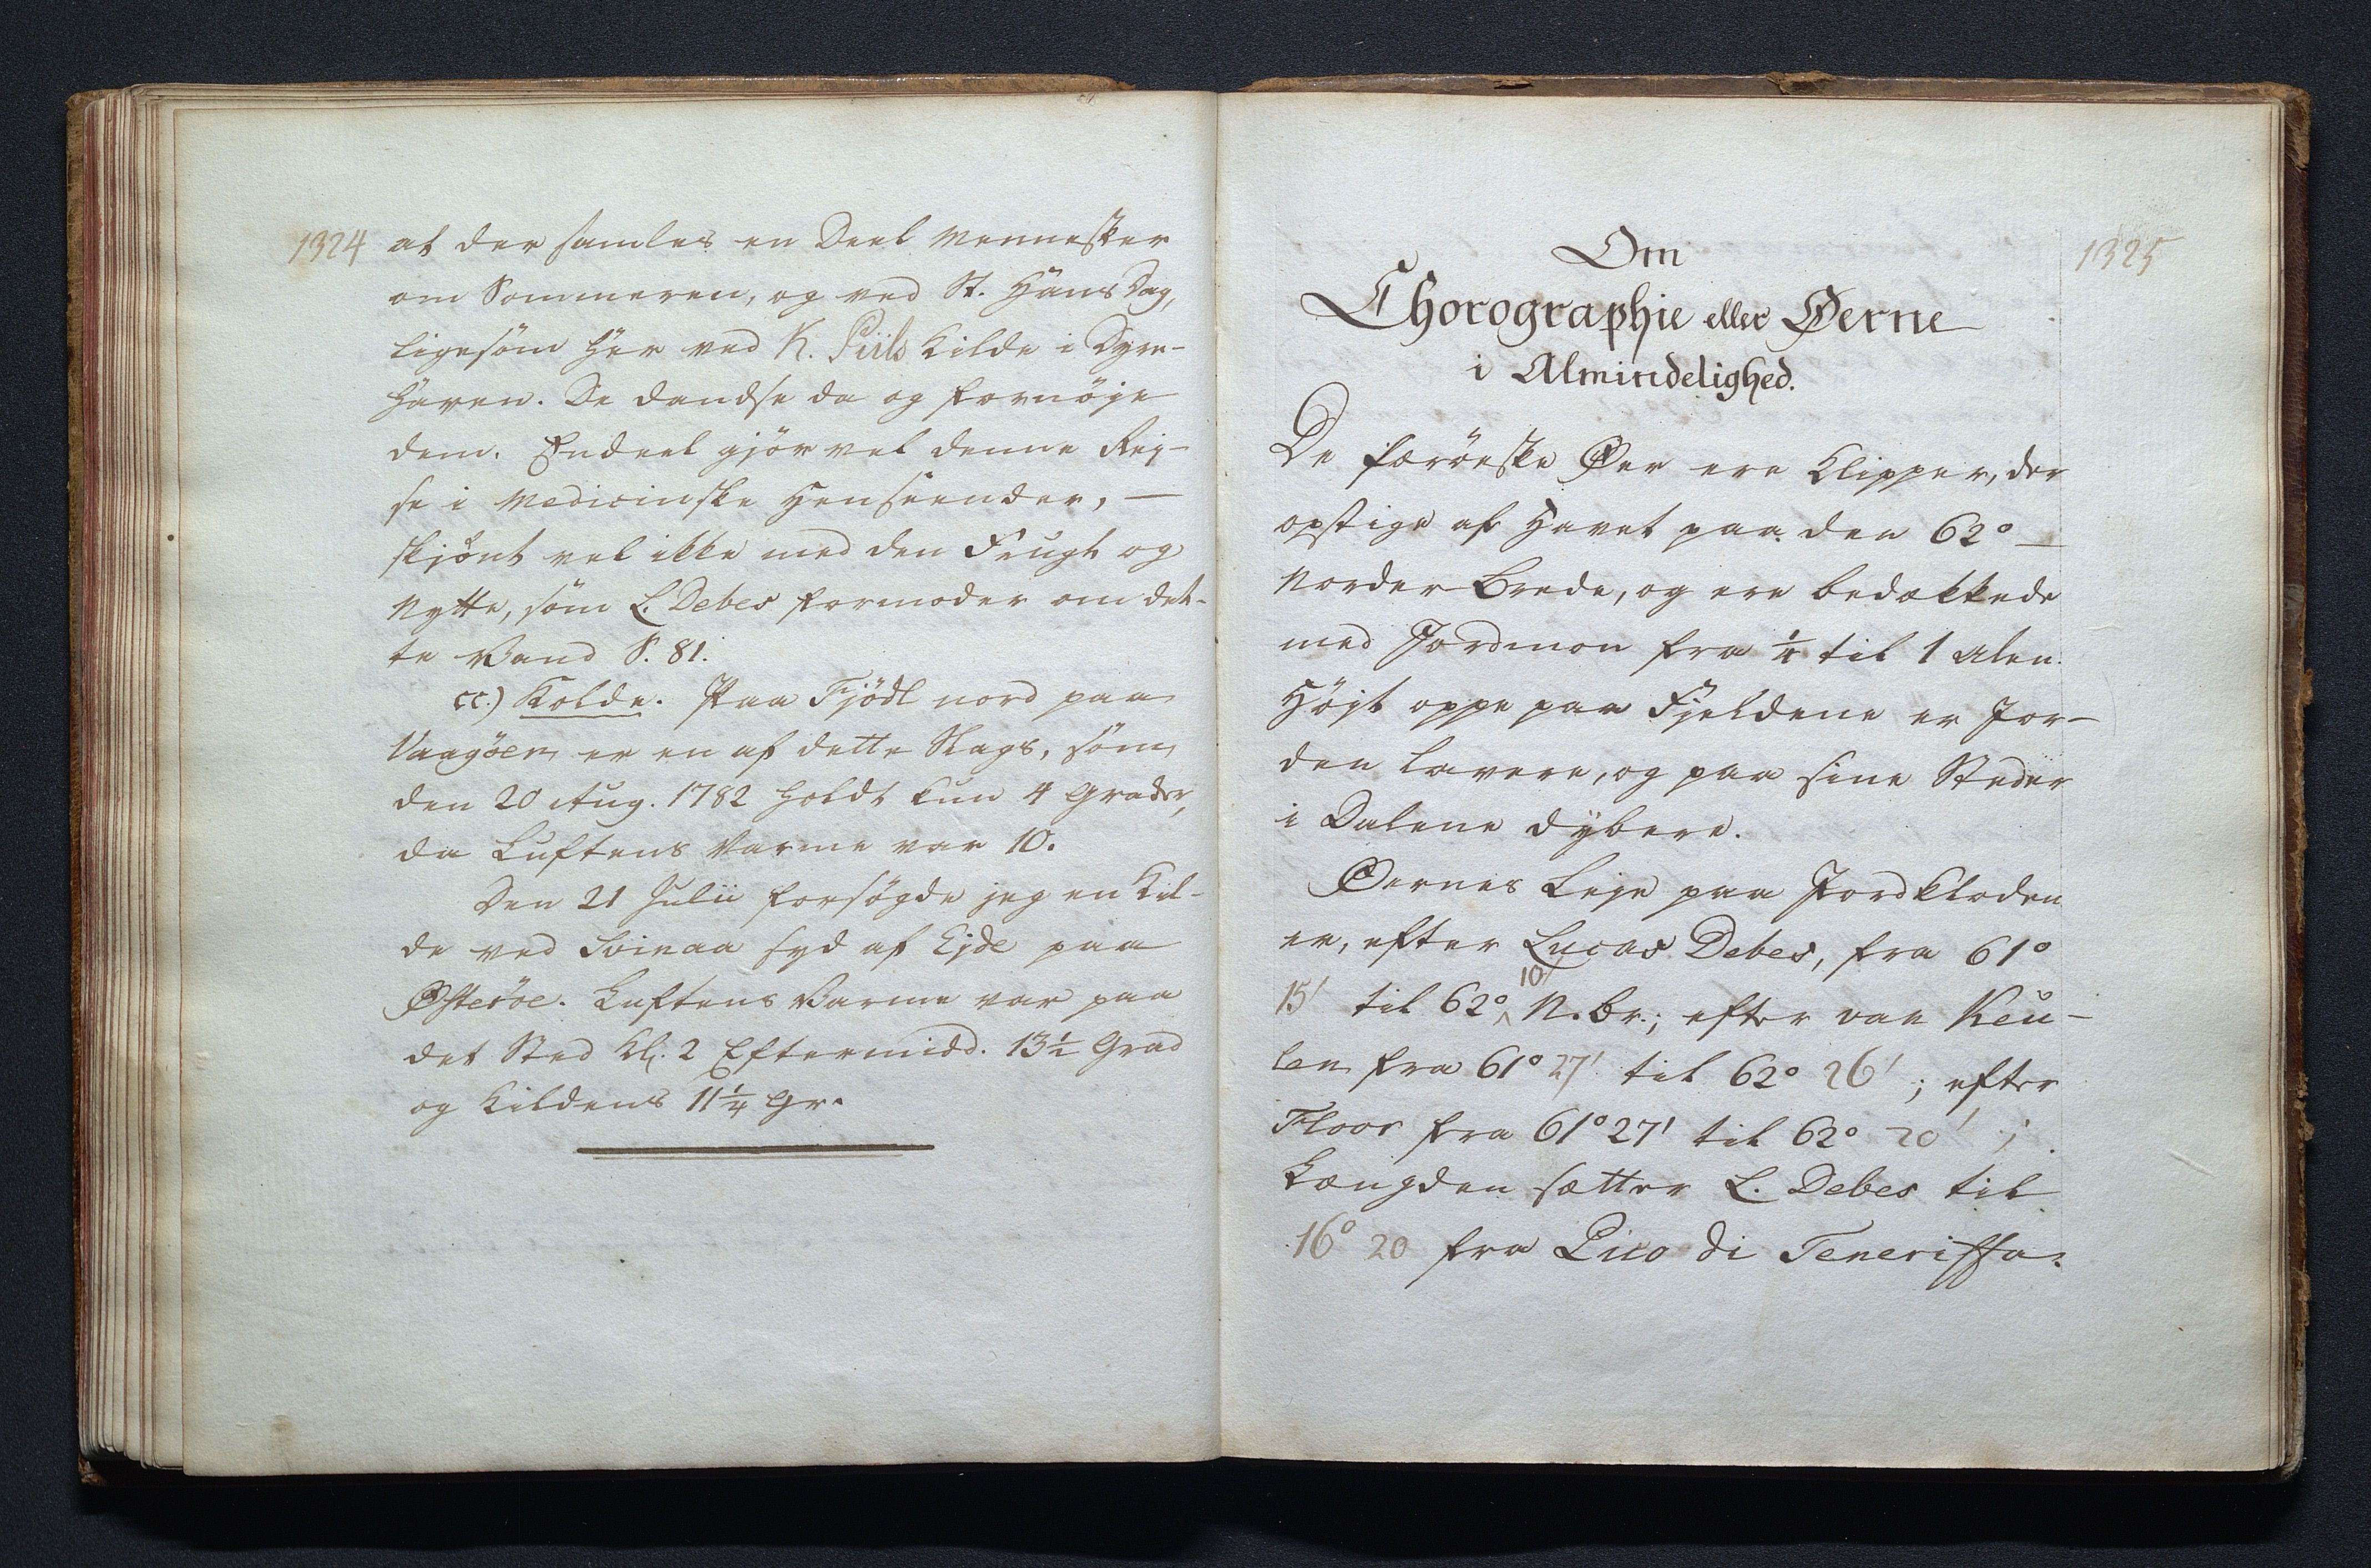 1324
at der samles en Deel Mennesker
om Sommeren, og ved St. Hans Dag,
ligesom her ved K. Piils Kilde i Dyre-
haven. De dandse da og fornöje
dem. Endeel gjör vel denne Rej-
se i Medicinske Henseender, —
skjönt vel ikke med den Frugt og
Nytte, som L. Debes formoder om det-
te Vand S. 81.
cc.) Kolde. Paa Fjödl nord paa
Vaagöen er en af dette Slags, som
den 20 Aug. 1782 holdt kun 4 Grader,
da Luftens Varme var 10.
Den 21 Julii forsögde jeg en Kil-
de ved Svinaa syd af Ejde paa
Österöe. Luftens Varme var paa
det Sted Kl. 2 Eftermidd. 13½ Grad
og Kildens 11¼ Gr.
1325
Om
Chorographie eller Øerne
i Almindelighed.
De færöeske Øer ere Klipper, der
opstige af Havet paa den 62° —
Norder Brede, og ere bedækkede
med Jordmon fra ¼ til 1 Alen.
Höjt oppe paa Fjeldene er Jor-
den lavere, og paa sine Steder
i Dalene dybere.
Øernes Leje paa Jordkloden
er, efter Lucas Debes, fra 61°
15' til 62° 10' N. Br.; efter van Keu-
len fra 61° 27' til 62° 26'; efter
Floor fra 61° 27' til 62° 20';
Længden sætter L. Debes til
16° 20 fra Pico di Teneriffa.